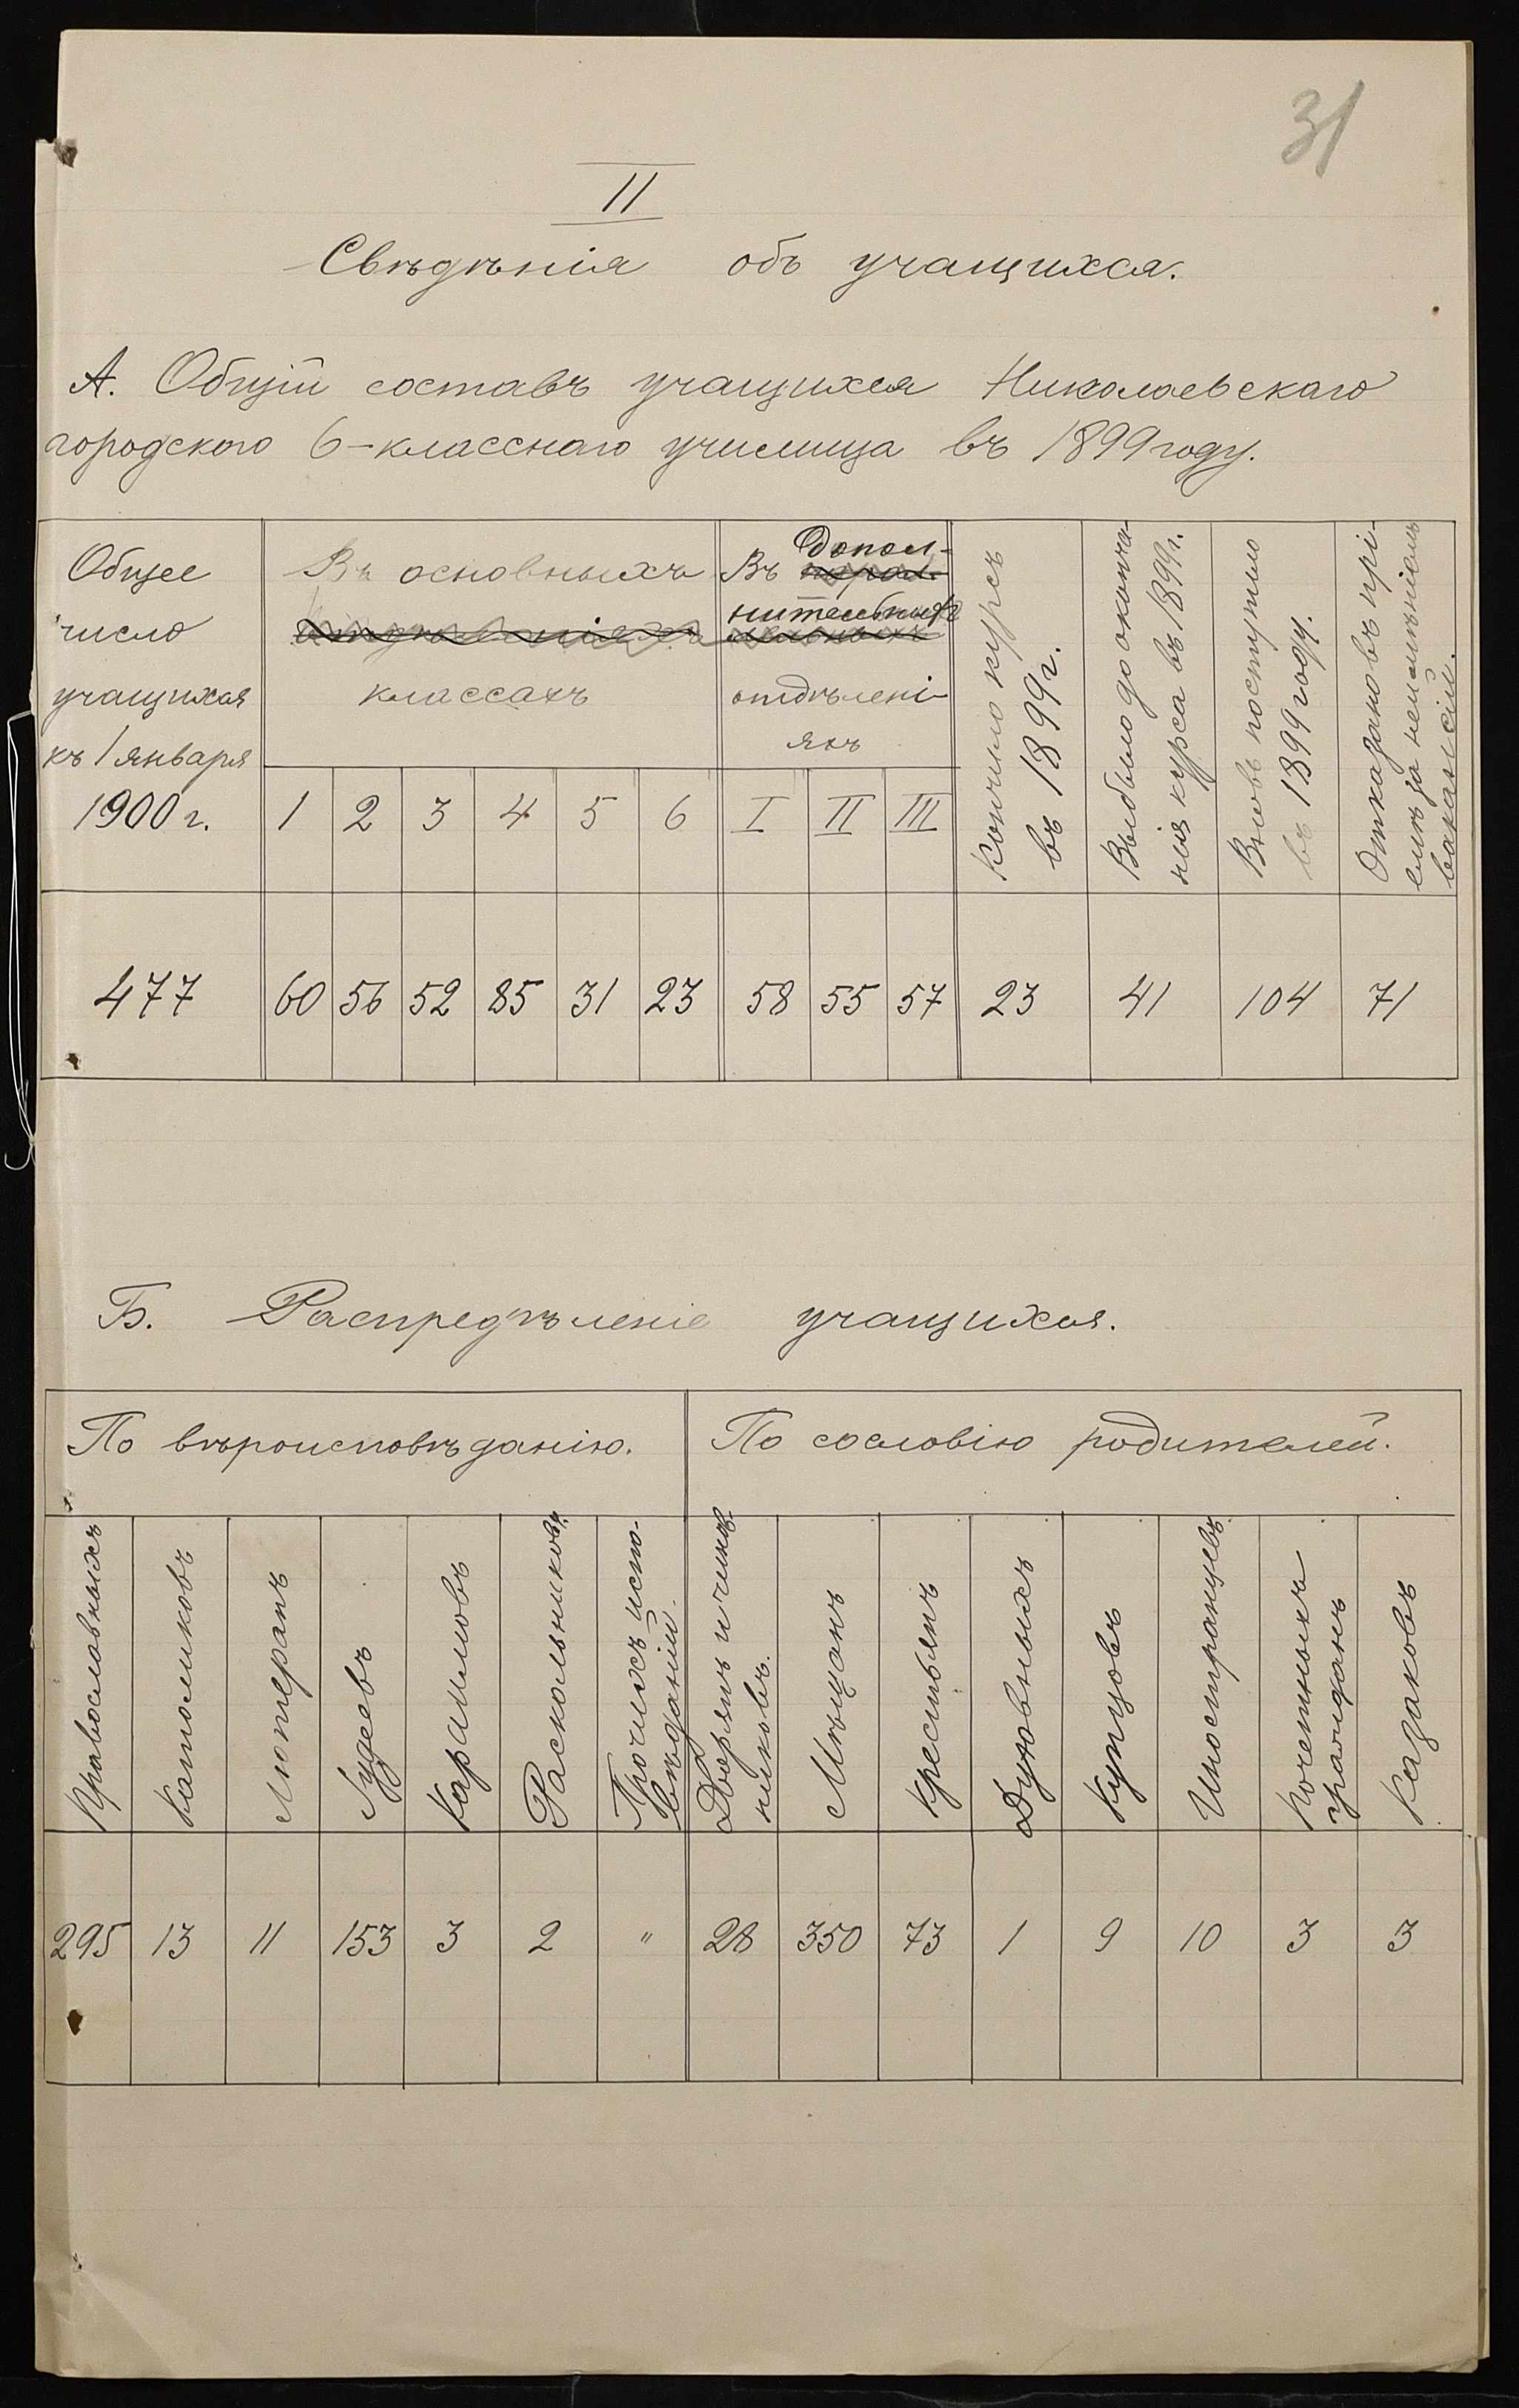 31
II
Свѣдѣнія объ учащихся.
А. Общій составъ учащихся Николаевскаго
городского 6-класснаго училища въ 1899 году.
Общее
число
учащихся
къ 1 января
1900 г.
Въ основныхъ
отдѣленіяхъ
классахъ
Въ парал-
Допол-
нительныхъ
лельныхъ
отдѣлені-
яхъ
Кончило курсъ
въ 1899 г.
Выбыло до оконча-
нія курса въ 1899 г.
Вновь поступило
въ 1899 году.
Отказано въ прі-
емѣ за неимѣніемъ
вакансій.
1 2 3 4 5 6 I II III
477 60 56 52 85 31 23 58 55 57 23 41 104 71
Б. Распредѣленіе учащихся.
По вѣроисповѣданію. По сословію родителей.
Православныхъ
Католиковъ
Лютеранъ
Іудеевъ
Караимовъ
Раскольниковъ
Прочихъ испо-
вѣданій.
Дворянъ и чинов-
никовъ.
Мѣщанъ
Крестьянъ
Духовныхъ
Купцовъ
Иностранцевъ
Почетныхъ
гражданъ
Казаковъ
295 13 11 153 3 2 " 28 350 73 1 9 10 3 3